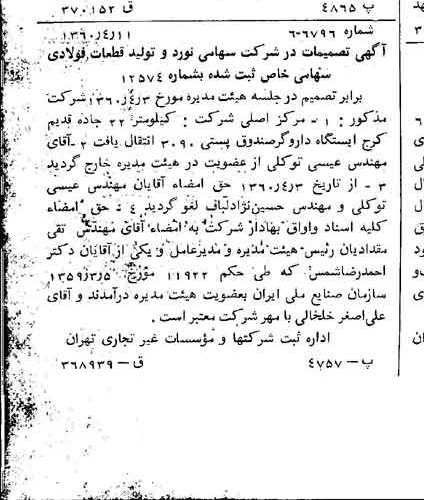 پ ۴۸۶۵ ق ۳۷۰،۱۵۲
شماره ۶-۶۷۹۶ ۱۳۶۰/۴/۱۱
آگهی تصمیمات در شرکت سهامی نورد و تولید قطعات فولادی
سهامی خاص ثبت شده بشماره ۱۲۵۷۴
برابر تصمیم در جلسه هیئت مدیره مورخ ۱۳۶۰/۴/۳ شرکت
مذکور : ۱- مرکز اصلی شرکت : کیلومتر ۲۲ جاده قدیم
کرج ایستگاه داروگر صندوق پستی ۳۰۹۰ انتقال یافت ۲-آقای
مهندس عیسی توکلی از عضویت در هیئت مدیره خارج گردید
۳ - از تاریخ ۱۳۶۰/۴/۳ حق امضاء آقایان مهندس عیسی
توکلی و مهندس حسین‌نژادلباف لغو گردید ۴- حق امضاء
کلیه اسناد واوراق بهادار شرکت به امضاء آقای مهندس تقی
مقدادیان رئیس هیئت مدیره و مدیرعامل و یکی از آقایان دکتر
احمدرضاشمس که طی حکم ۱۱۹۲۲ مورخ ۱۳۵۹/۳/۵
سازمان صنایع ملی ایران بعضویت هیئت مدیره درآمدند و آقای
علی‌اصغر خلخالی با مهر شرکت معتبر است .
اداره ثبت شرکتها و مؤسسات غیر تجاری تهران
پ- ۴۷۵۷ ق- ۳۶۸۹۳۹